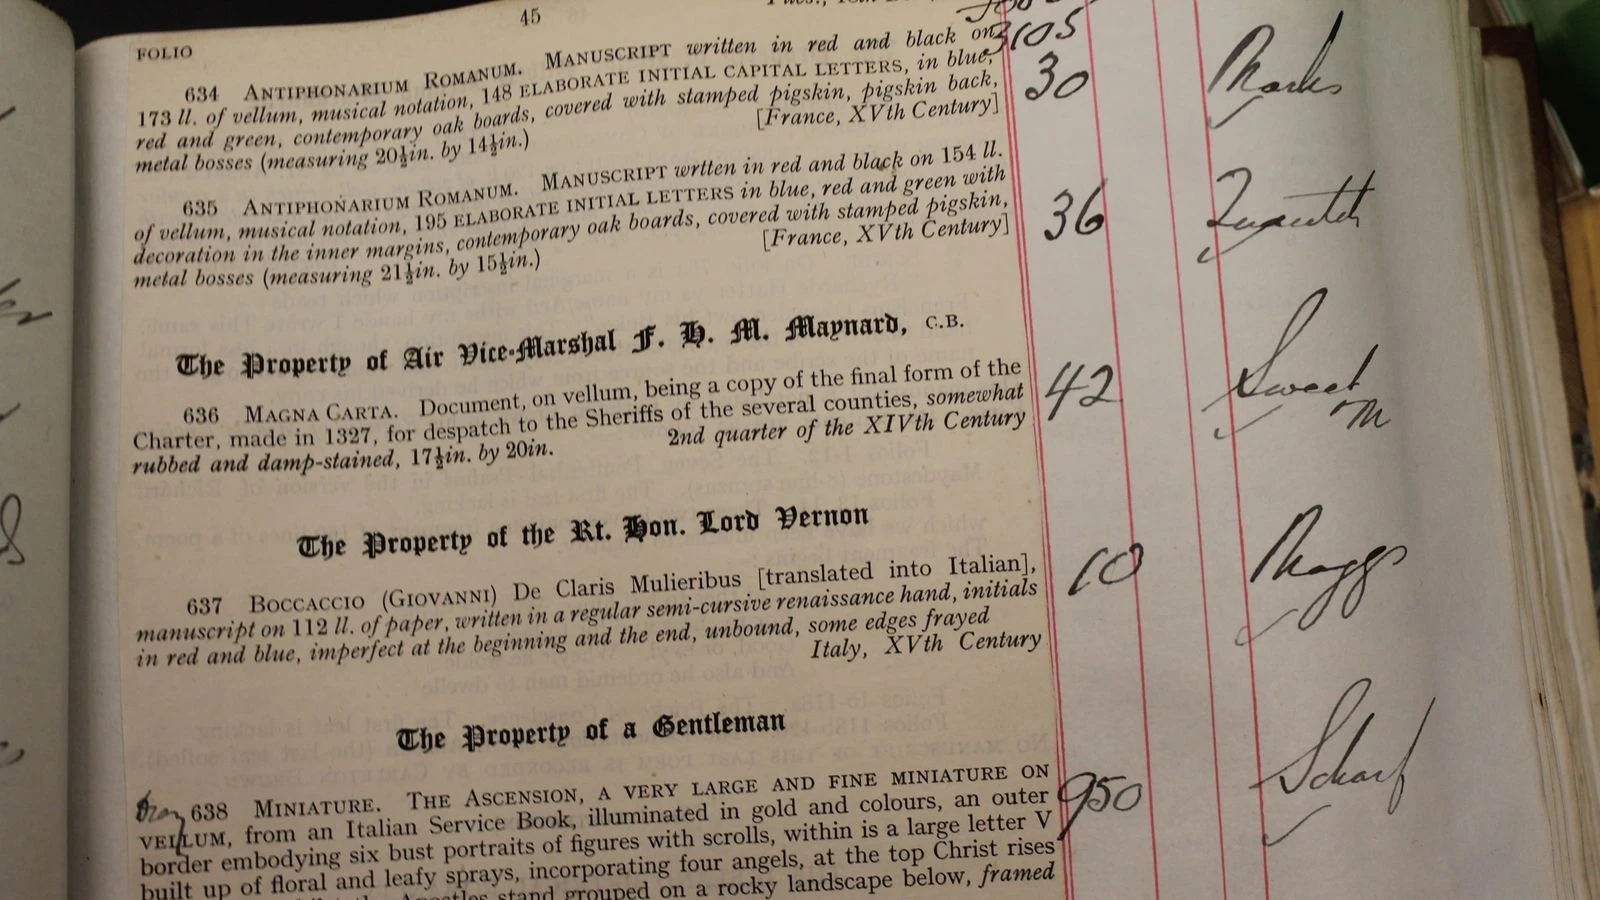 45
FOLIO
3105
634 ANTIPHONARIUM ROMANUM. MANUSCRIPT written in red and black on
173 ll. of vellum, musical notation, 148 ELABORATE INITIAL CAPITAL LETTERS, in blue,
red and green, contemporary oak boards, covered with stamped pigskin, pigskin back,
metal bosses (measuring 20½in. by 14½in.) [France, XVth Century]
30 Marks
635 ANTIPHONARIUM ROMANUM. MANUSCRIPT wrtten in red and black on 154 ll.
of vellum, musical notation, 195 ELABORATE INITIAL LETTERS in blue, red and green with
decoration in the inner margins, contemporary oak boards, covered with stamped pigskin,
metal bosses (measuring 21½in. by 15½in.) [France, XVth Century]
36 Quaritch
The Property of Air Vice-Marshal F. H. M. Maynard, C.B.
636 MAGNA CARTA. Document, on vellum, being a copy of the final form of the
Charter, made in 1327, for despatch to the Sheriffs of the several counties, somewhat
rubbed and damp-stained, 17½in. by 20in. 2nd quarter of the XIVth Century
42 Sweet
M
The Property of the Rt. Hon. Lord Vernon
637 BOCCACCIO (GIOVANNI) De Claris Mulieribus [translated into Italian],
manuscript on 112 ll. of paper, written in a regular semi-cursive renaissance hand, initials
in red and blue, imperfect at the beginning and the end, unbound, some edges frayed
Italy, XVth Century
10 Maggs
The Property of a Gentleman
638 MINIATURE. THE ASCENSION, A VERY LARGE AND FINE MINIATURE ON
VELLUM, from an Italian Service Book, illuminated in gold and colours, an outer
border embodying six bust portraits of figures with scrolls, within is a large letter V
built up of floral and leafy sprays, incorporating four angels, at the top Christ rises
Apostles stand grouped on a rocky landscape below, framed
950 Scharf